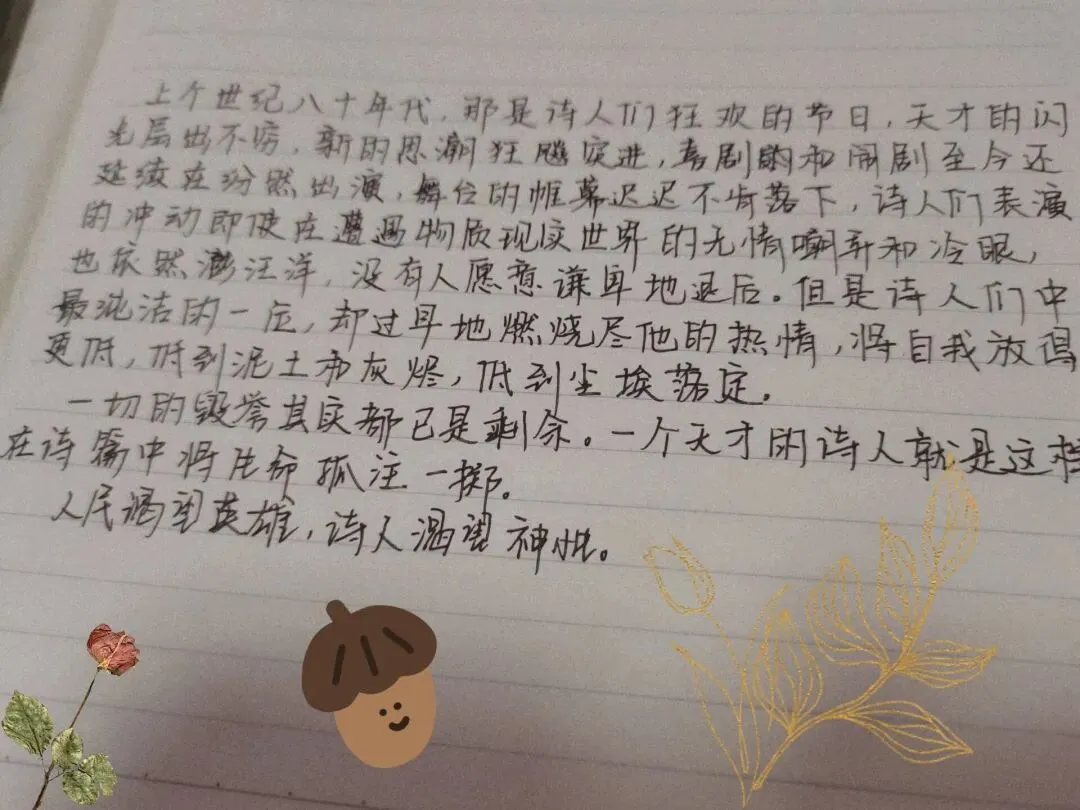 上个世纪八十年代，那是诗人们狂欢的节日，天才的闪
光层出不穷，新的思潮狂飚突进，喜剧和闹剧至今还
延续在纷然出演，舞台的帷幕迟迟不肯落下，诗人们表演
的冲动即使在遭遇物质现实世界的无情嘲弄和冷眼，
也依然澎汪洋，没有人愿意谦卑地退后。但是诗人们中
最纯洁的一位，却过早地燃烧尽他的热情，将自我放得
更低，低到泥土和灰烬，低到尘埃落定。
一切的毁誉其实都已是剩余。一个天才的诗人就是这样
在诗篇中将生命孤注一掷。
人民渴望英雄，诗人渴望神性。